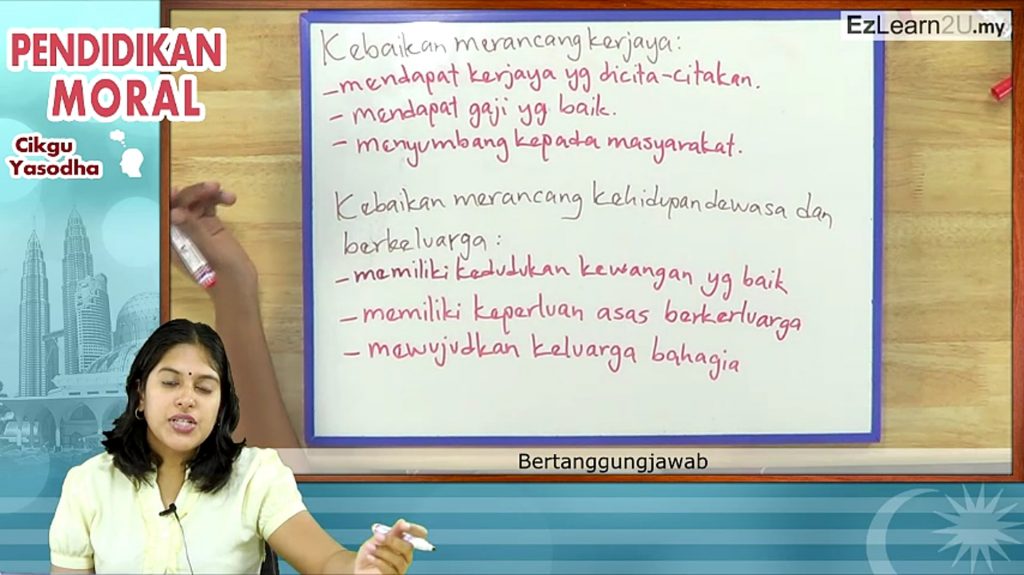 PENDIDIKAN
MORAL
Cikgu
Yasodha
EzLearn2U.my
Kebaikan merancang kerjaya:
-mendapat kerjaya yg dicita-citakan.
- mendapat gaji yg baik.
- menyumbang kepada masyarakat.
Kebaikan merancang kehidupan dewasa dan
berkeluarga:
-memiliki kedudukan kewangan yg baik
- memiliki keperluan asas berkerluarga
- mewujudkan keluarga bahagia
Bertanggungjawab